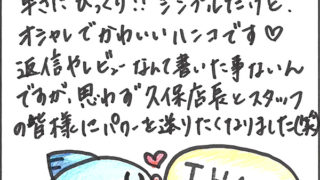 早さにびっくり!! シンプルだけど、
オシャレでかわいいハンコです♡
返信やレビューなんて書いた事ないん
ですが、思わず久保店長とスタッフ
の皆様にパワーを送りたくなりました(笑)
THA